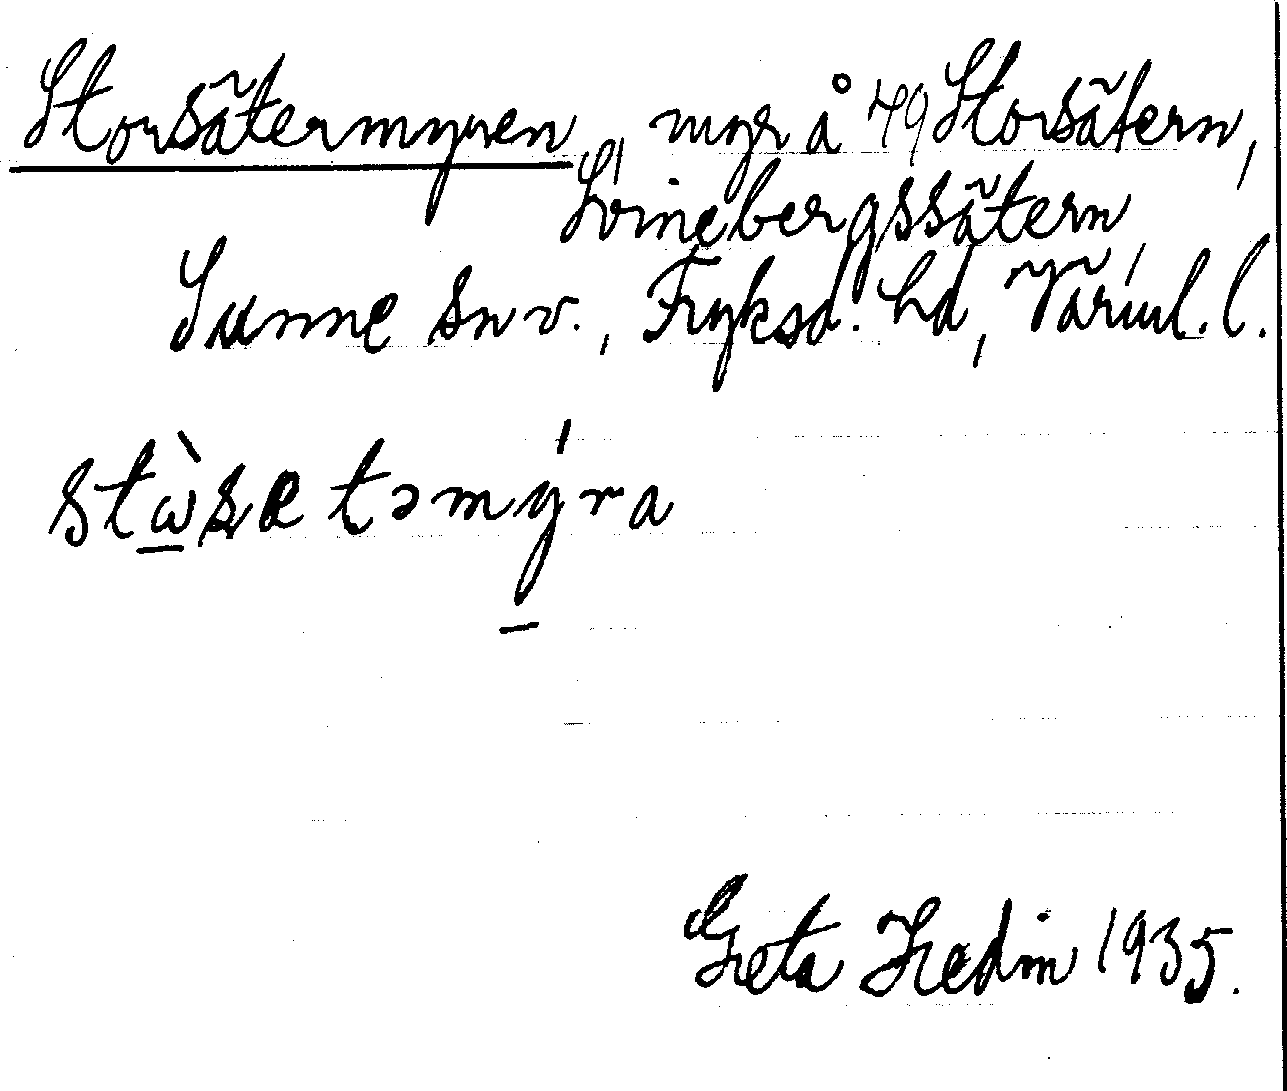 Storsätermyren, myr å 49 Storsätern,
Svinebergssätern
Sunne sn v., Fryksd. hd, Värml. l.
stὼsætəmýra
Greta Hedin 1935.